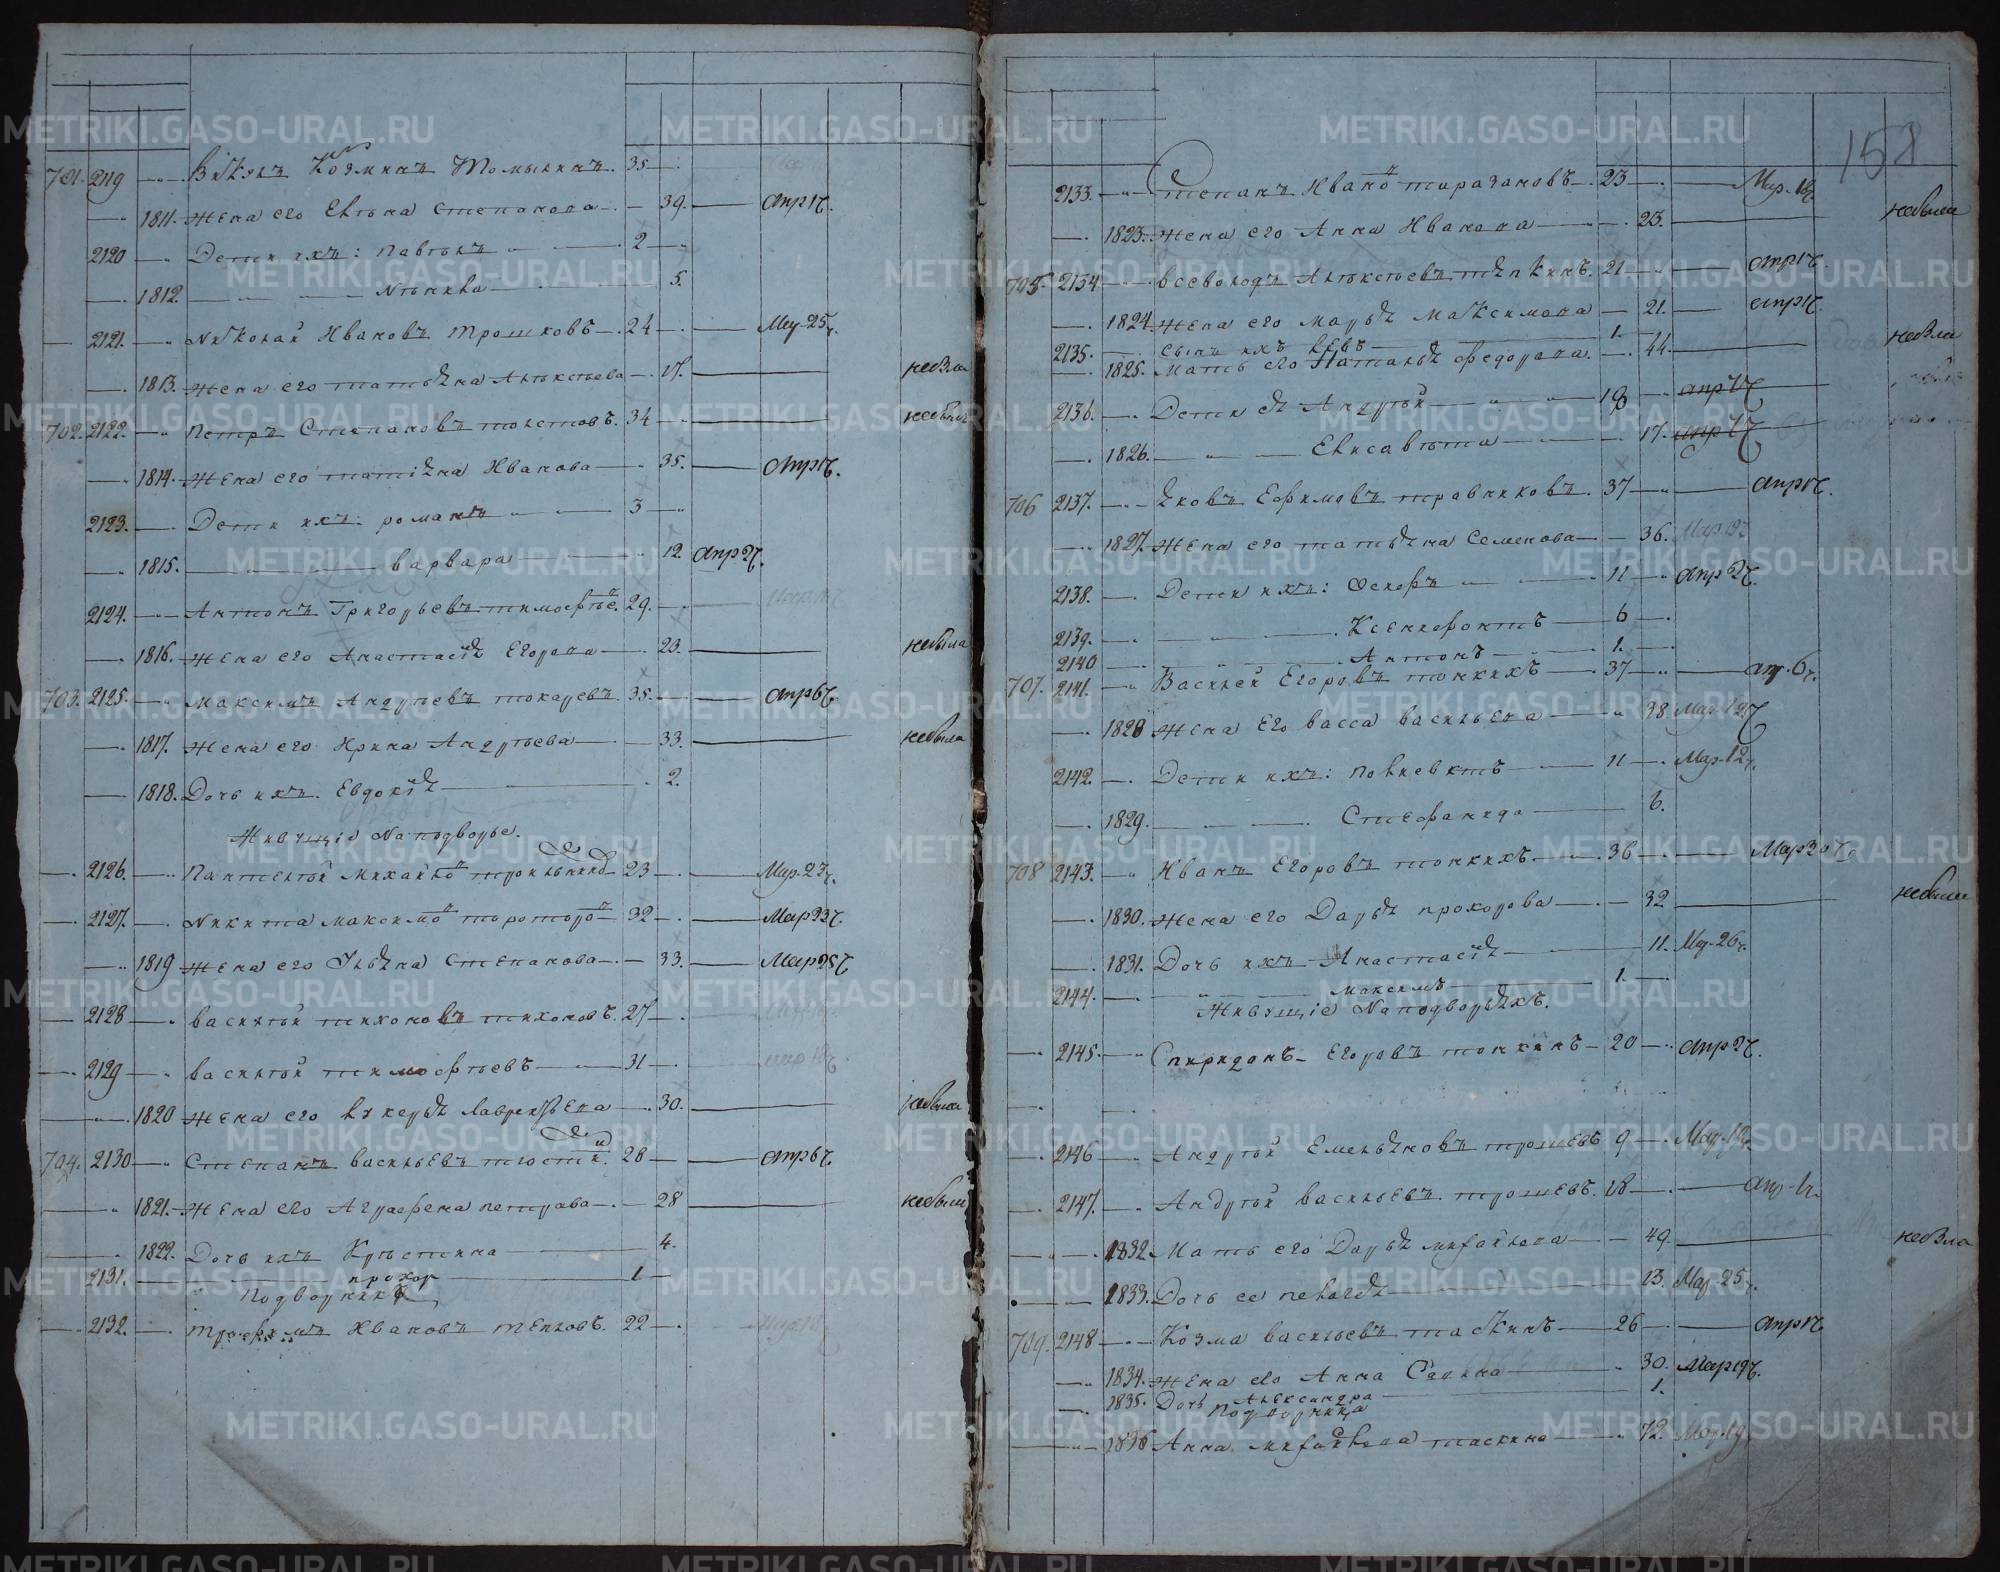 701. 2119 Викулъ Козминъ Томилинъ. 35
1811. жена его Елена Степанова 39. Апр 1 ч.
2120 Дети ихъ: Павелъ 2
1812. 5.
2121. Николай Ивановъ Трошковъ 24 25 ч.
1813. жена его татьяна Алексеева 17. небыла
702. 2122. Петръ Степановъ толстовъ. 34 небылъ
1814. жена его татияна Иванова 35. Апр 1 ч.
2123. Дети ихъ: романъ 3
1815. варвара 12. Апр 2 ч.
2124. Антонъ Григорьевъ тимофее. 29.
1816. жена его Анастасия Егорова 23. небыла
703. 2125. Максимъ Андреевъ токаревъ 35. Апр 6 ч.
1817. жена его Ирина Андреева 33. небыла
1818. Дочь ихъ. Евдокия 2.
Живущие На подворье.
2126. Пантелей Михайло 23 Мар. 23 ч.
2127. Никита максимо 32 Мар 23 ч.
1819 жена его Улияна Степанова 33. Мар 25 ч
2128 василей тихоновъ тихоновъ. 27
2129 василей тимофеевъ 31 мар 18 ч.
1820 жена его Лукерья Лаврентьева 30. небыла
704. 2130 Степанъ васильевъ 28 Апр 6 ч.
1821. жена его Аграфена петрова 28 небыла
1822. Дочь ихъ Крестина 4.
2131. прохор 1
Подворники
2132. Ивановъ 22
158
2133. Степанъ Ивано таразановъ 23 Мар. 18 ч
1823. жена его Анна Иванова 23. небыла
705. 2134 всеволодъ Алексеевъ тяпкинъ. 21 Апр 1 ч.
1824. жена его марья максимова 21. Апр 1 ч.
2135. сынъ ихъ Левъ 1.
1825. Мать его Наталья федорова. 44. небыла
2136. Дети ея Андрей 18 апр 7 ч
1826. Елисавета 17. апр 7 ч
706 2137. Яковъ Ефимовъ травниковъ. 37 Апр 1 ч.
1827. жена его татьяна семенова 36. Мар 19 ч
2138. Дети ихъ: 11 Апр 2 ч.
2139. Ксенефонтъ 6
2140 Антонъ 1.
707. 2141. Василей Егоровъ тонкихъ 37 апр. 6 ч.
1828 жена Его васса васильева 38. Мар. 19 ч
2142. Дети ихъ: Полиевктъ 11 Мар. 12 ч.
1829. Стефанида 6.
708 2143. Иванъ Егоровъ тонкихъ 36 Мар 20 ч.
1830. жена его Дарья прохорова 32 небыла
1831. Дочь ихъ Анастасия 11. Мар. 26 ч.
2144. максимъ 1.
Живущие На подворьяхъ.
2145. Спиридонъ Егоровъ тонкихъ 20 Апр 2 ч.
2146 Андрей Емельяновъ трошевъ 9 Мар. 18 ч
2147. Андрей васильевъ трошевъ. 18 апр. 1 ч.
1832. Мать его Дарья михайлова 49. небыла
1833. Дочь ее пелагея 13. Мар. 25 ч.
709. 2148 Козма васильевъ таскинъ 26 Апр 1 ч
1834. жена его Анна Савина 30. Мар 19 ч.
1835. Дочь Александра 1.
Подворница
1836 Анна михайлова таскина 72. Мар. 19 ч